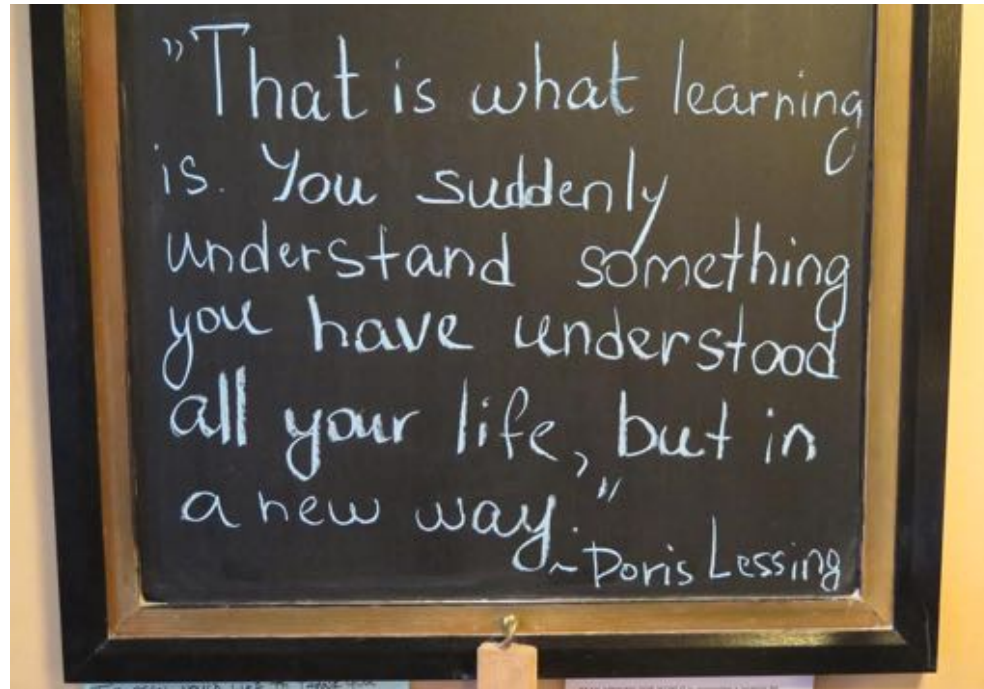 "That is what learning
is. You suddenly
understand something
you have understood
all your life, but in
a new way."
~Doris Lessing